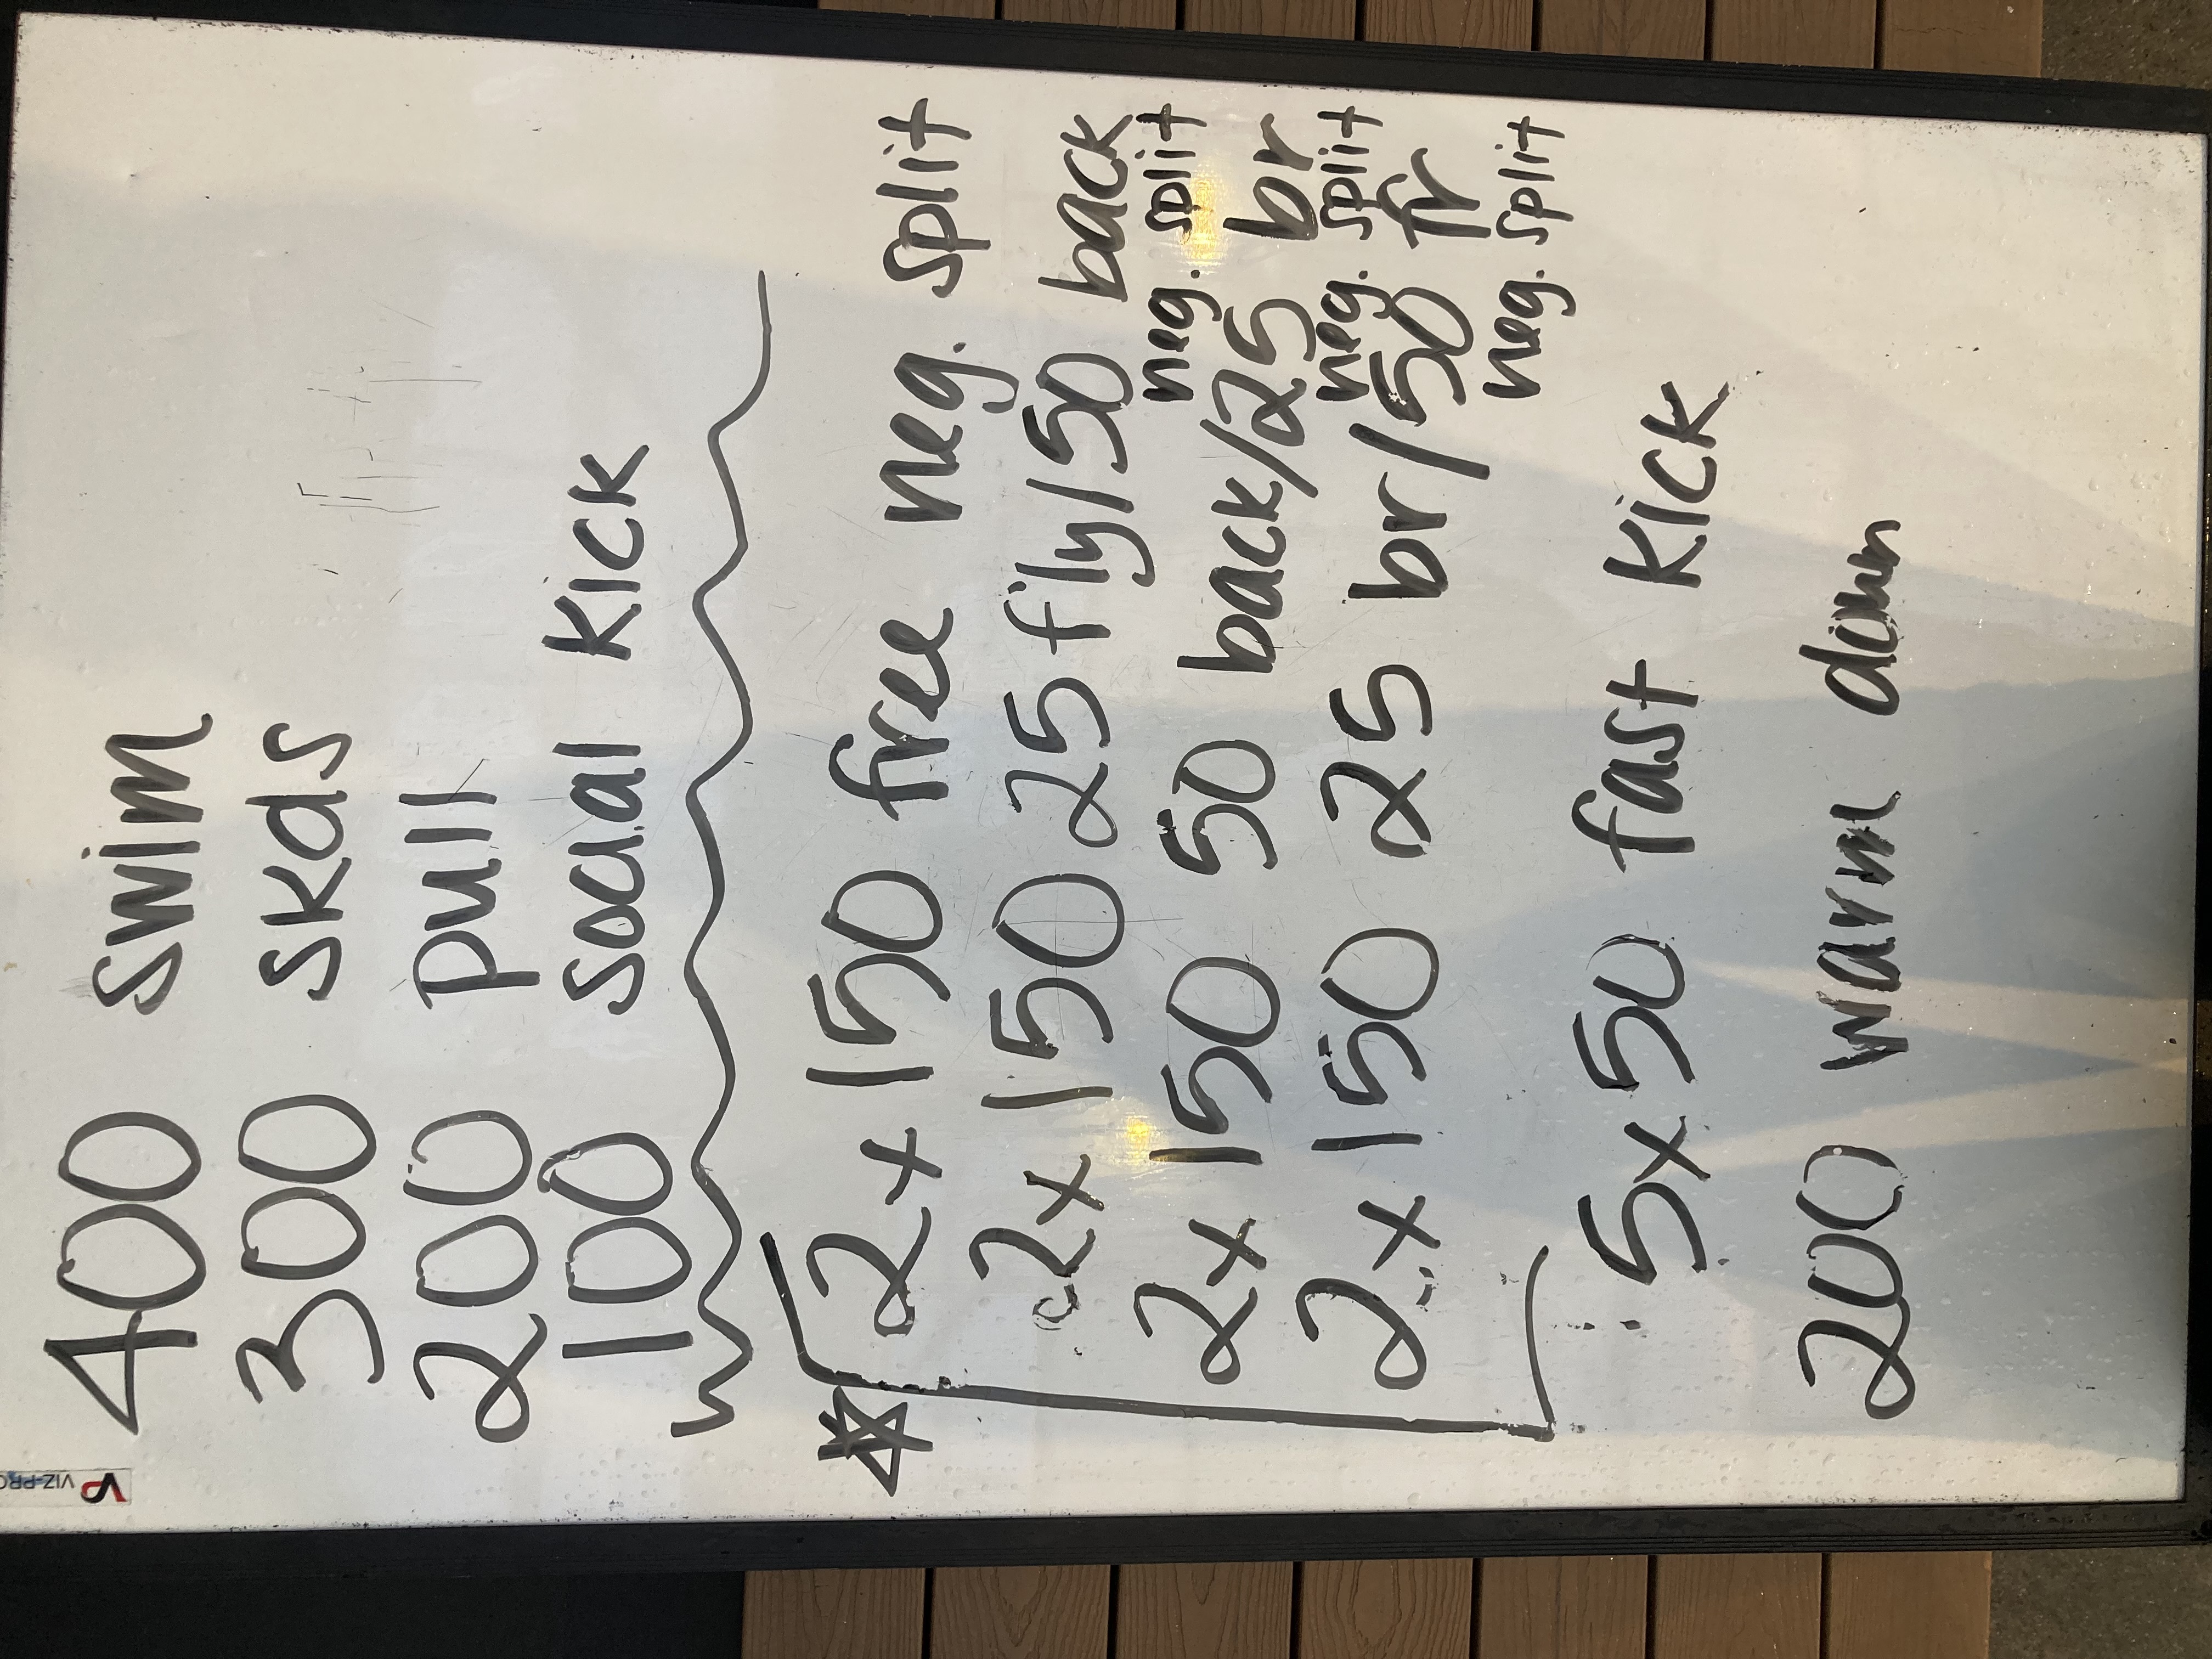 VIZ-PRO
400 swim
300 skds
200 pull
100 social kick
2x 150 free neg. split
2x 150 25 fly/50 back
neg. split
2x 150 50 back/25 br
neg. split
2x 150 25 br/50 fr
neg. split
5x50 fast kick
200 warm down